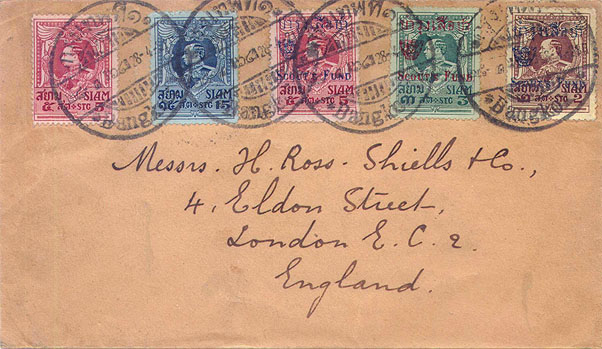 สยาม SIAM
๕ สต.-STG 5
สยาม SIAM
๑๕ สต.-STG 15
SCOUT'S FUND
สยาม SIAM
๕ สต.-STG 5
SCOUT'S FUND
สยาม SIAM
๓ สต.-STG 3
สยาม SIAM
2
Bangkok
Messrs. H. Ross-Shiells & Co.,
4, Eldon Street,
London E.C. 2.
England.